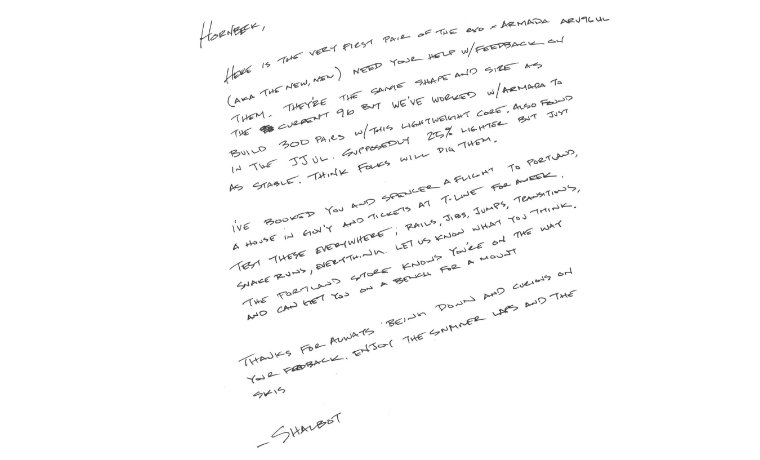 HORNBEK,
HERE IS THE VERY FIRST PAIR OF THE evo x ARMADA ARV96UL
(AKA THE NEW, NEW) NEED YOUR HELP W/FEEDBACK ON
THEM. THEY'RE THE SAME SHAPE AND SIZE AS
THE CURRENT 96 BUT WE'VE WORKED W/ARMADA TO
BUILD 300 PAIRS W/THIS LIGHTWEIGHT CORE. ALSO FOUND
IN THE JJ UL. SUPPOSEDLY 25% LIGHTER BUT JUST
AS STABLE. THINK FOLKS WILL DIG THEM.
I'VE BOOKED YOU AND SPENCER A FLIGHT TO PORTLAND,
A HOUSE IN GOV'Y AND TICKETS AT T-LINE FOR A WEEK.
TEST THESE EVERYWHERE; RAILS, JIBS, JUMPS, TRANSITIONS,
SNAKE RUNS, EVERYTHING. LET US KNOW WHAT YOU THINK.
THE PORTLAND STORE KNOWS YOU'RE ON THE WAY
AND CAN GET YOU ON A BENCH FOR A MOUNT
THANKS FOR ALWAYS BEING DOWN AND CURIOUS ON
YOUR FEEDBACK. ENJOY THE SUMMER LAPS AND THE
SKIS
– SHALBOT